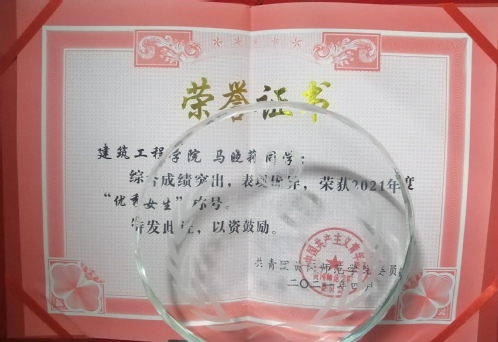 荣誉证书
建筑工程学院 马晓莉同学:
综合成绩突出,表现优异,荣获2021年度
“优秀女生”称号。
特发此证,以资鼓励。
中国共产主义青年
共青团 师范学 委员
二〇二 年 月